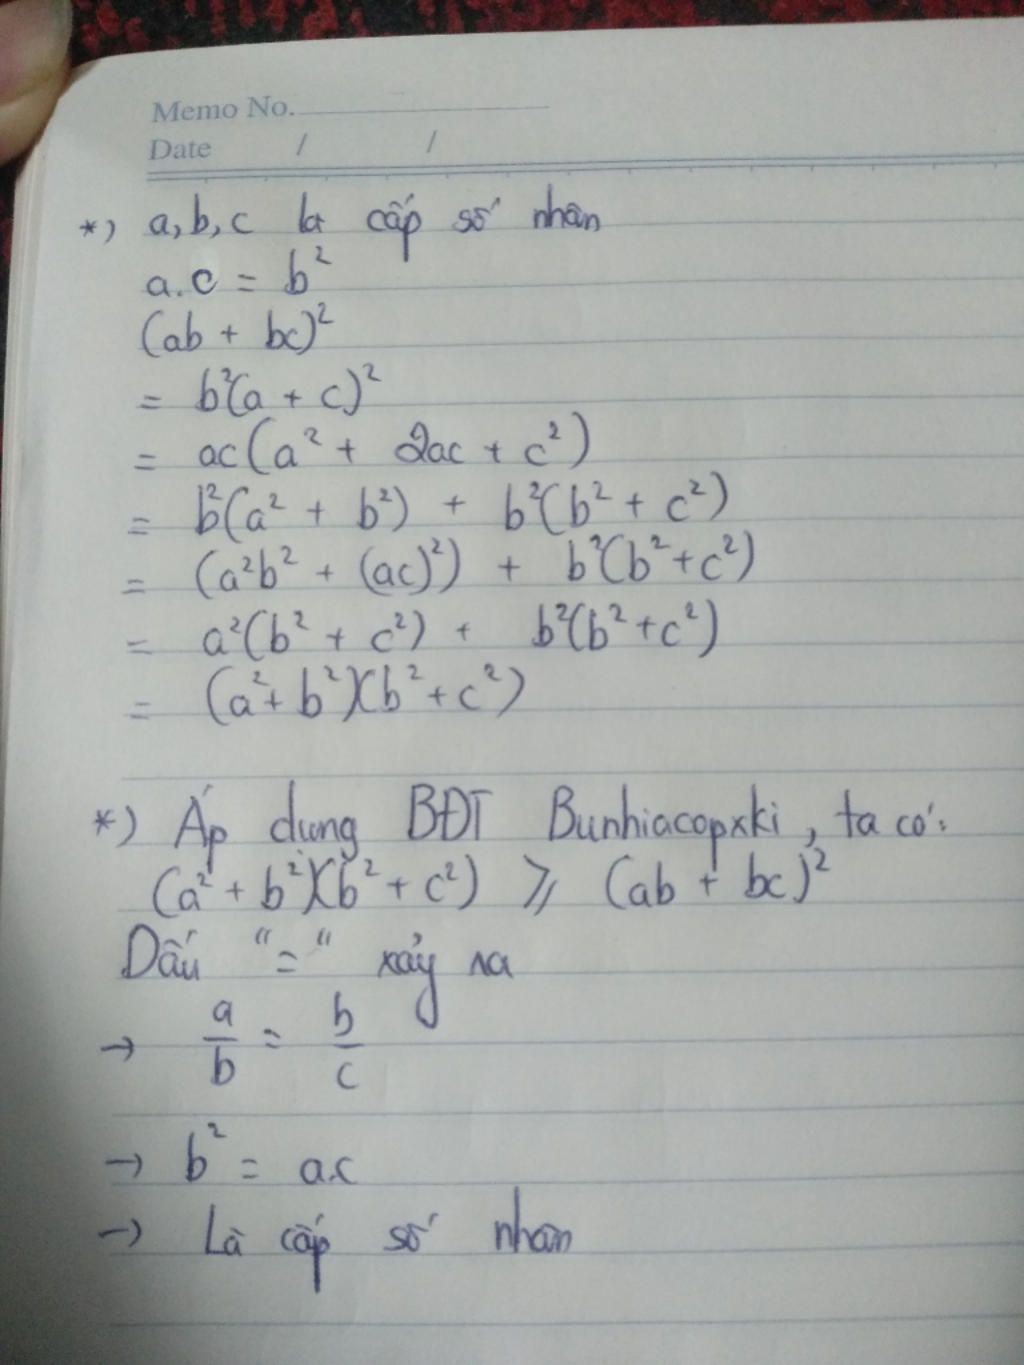 Memo No.
Date / /
*) a, b, c là cấp số nhân
a.c = b²
(ab + bc)²
= b²(a + c)²
= ac(a² + 2ac + c²)
= b²(a² + b²) + b²(b² + c²)
= (a²b² + (ac)²) + b²(b² + c²)
= a²(b² + c²) + b²(b² + c²)
= (a² + b²)(b² + c²)
*) Áp dụng BĐT Bunhiacopxki, ta có:
(a² + b²)(b² + c²) ⩾ (ab + bc)²
Dấu "=" xảy ra
→ a/b = b/c
→ b² = a.c
→ Là cấp số nhân